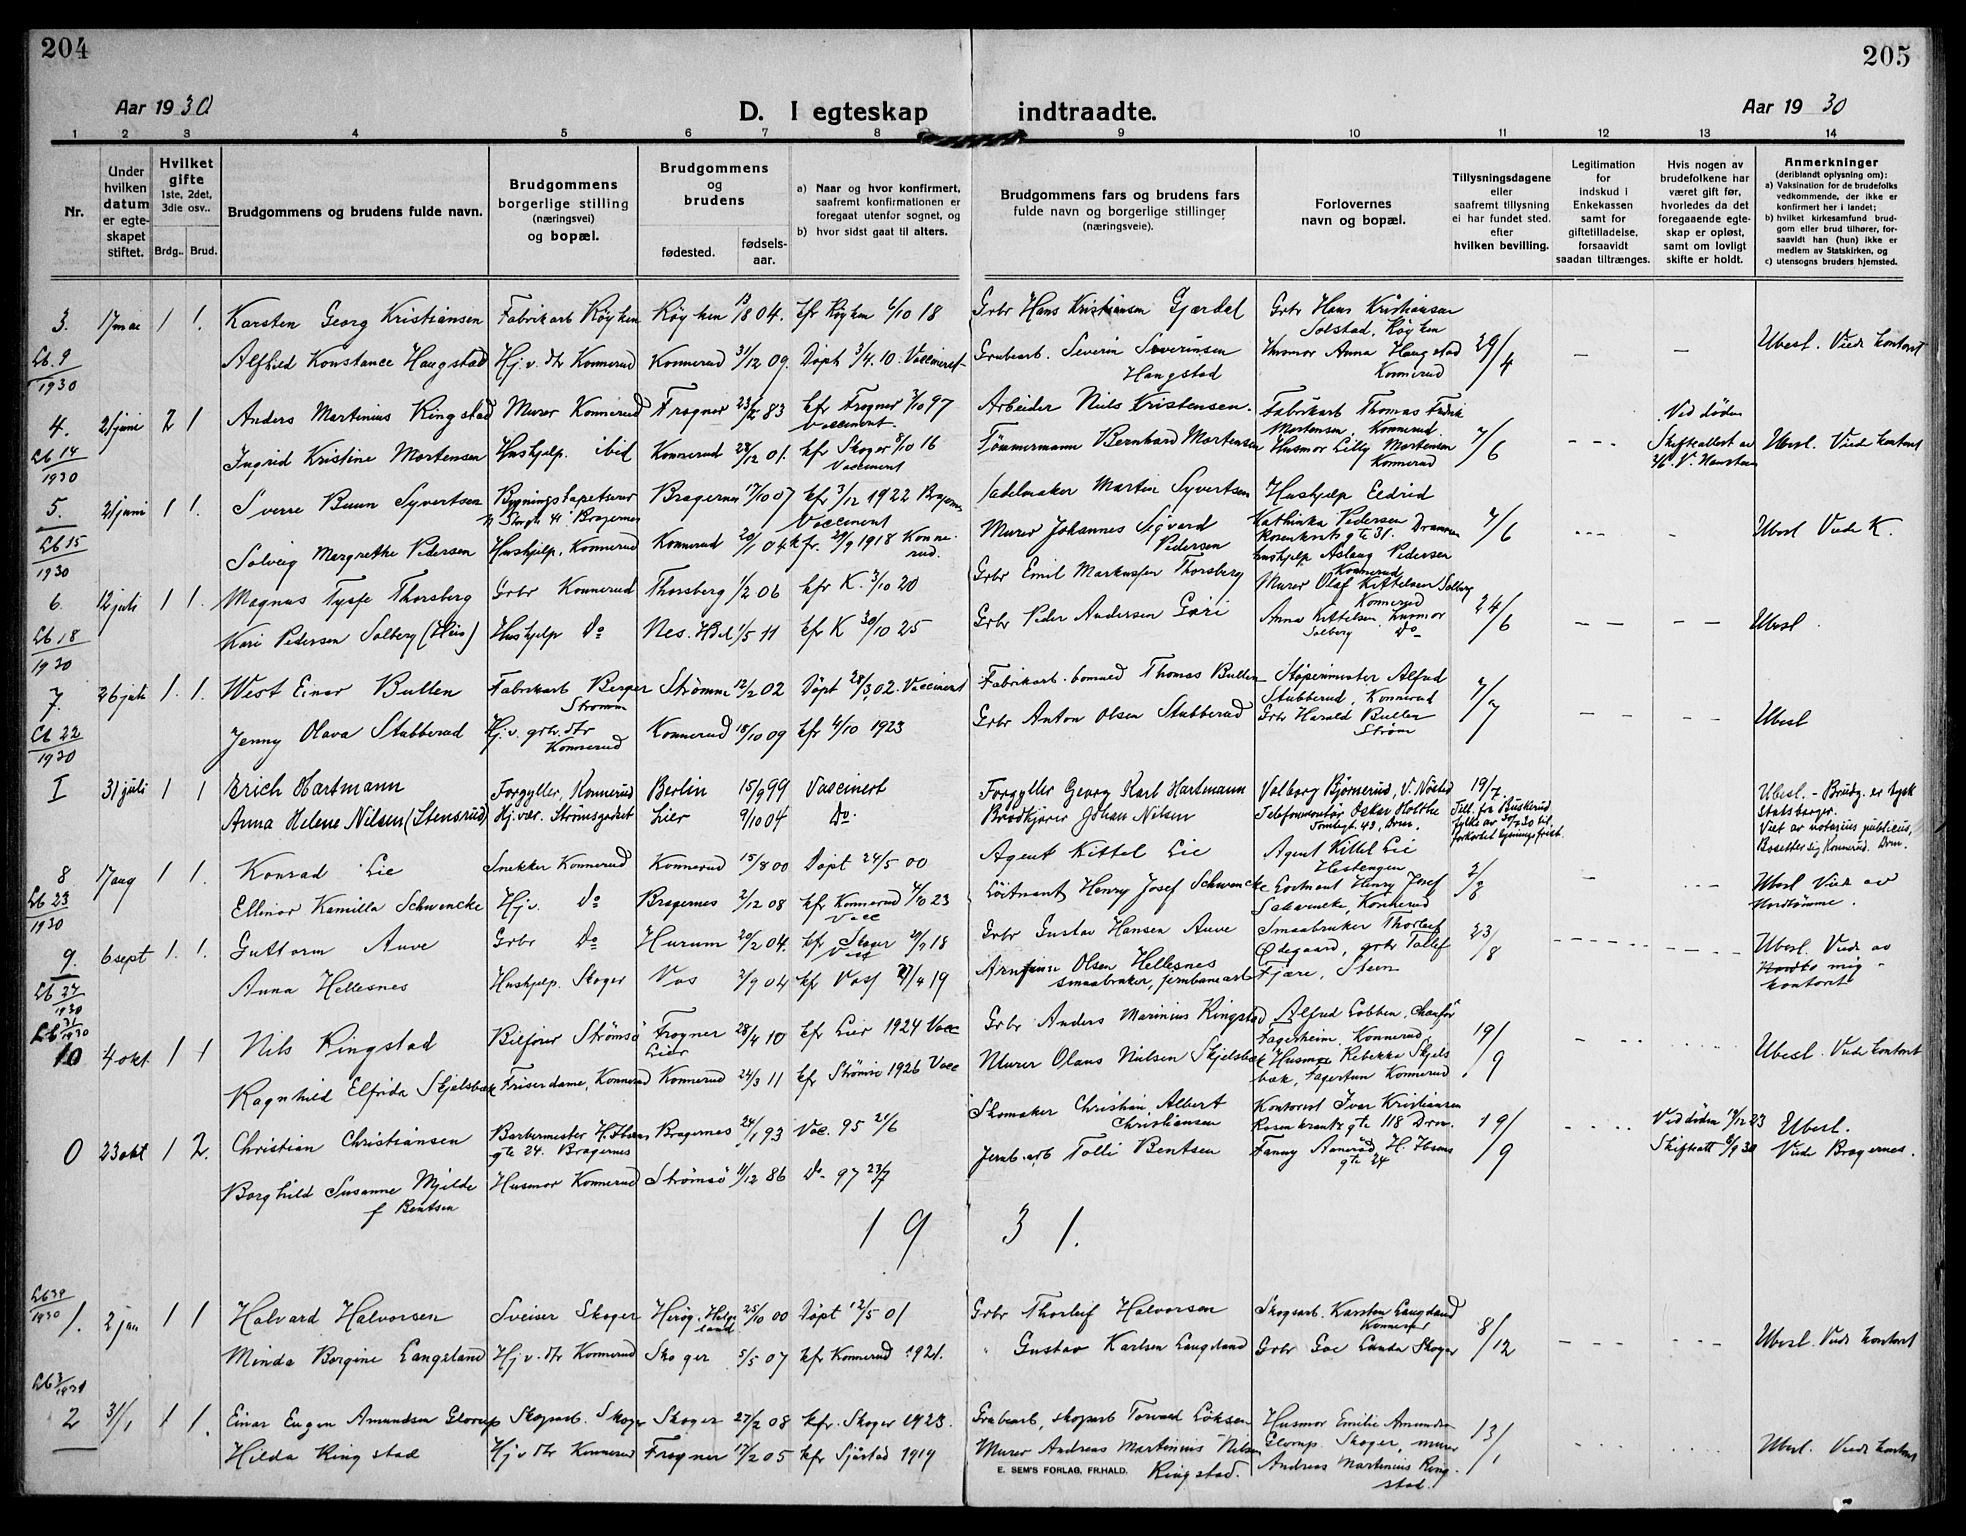 204
205
Aar 1930
D. I egteskap indtraadte.
Aar 1930
1 2 3 4 5 6 7 8 9 10 11 12 13 14
Nr.
Under hvilken datum er egteskapet stiftet.
Hvilket gifte 1ste, 2det, 3die osv..
Brdg.. Brud.
Brudgommens og brudens fulde navn.
Brudgommens borgerlige stilling (næringsvei) og bopæl.
Brudgommens og brudens
fødested. fødsels-aar.
a) Naar og hvor konfirmert, saafremt konfirmationen er foregaat utenfor sognet, og
b) hvor sidst gaat til alters.
Brudgommens fars og brudens fars fulde navn og borgerlige stillinger (næringsveie).
Forlovernes navn og bopæl.
Tillysningsdagene eller saafremt tillysning ei har fundet sted. efter hvilken bevilling.
Legitimation for indskud i Enkekassen samt for giftetilladelse, forsaavidt saadan tiltrænges.
Hvis nogen av brudefolkene har været gift før, hvorledes da det foregaaende egteskap er opløst, samt om lovligt skifte er holdt.
Anmerkninger (deriblandt oplysning om):
a) Vaksination for de brudefolks vedkommende, der ikke er konfirmert her i landet;
b) hvilket kirkesamfund brudgom eller brud tilhører, forsaavidt han (hun) ikke er medlem av Statskirken, og
c) utensogns bruders hjemsted.
3. 17 mai 1 1. Karsten Georg Kristiansen Fabrikarb Røyken Røyken 04. kfr Røyken 6/10 18 Grbr Hans Kristiansen Gjerdal Grbr Hans Kristiansen Solstad, Røyken
Lb. 9/1930 Alfhild Konstance Haugstad Hj. v. dtr Konnerud Konnerud 31/12 09. Døpt 3/4. 10. Vaccinert Grubearb. Severin Severinsen Haugstad Husmor Anna Haugstad Konnerud 29/4 — — Ubesl. Viede kontoret
4. 21 juni 2 1 Anders Martinius Ringstad Murer Konnerud Frogner 83 kfr Frogner 3/10 97 Vaccinert. Arbeider Niels Kristensen. Fabrikarb Thomas Fredrik Mortensen, Konnerud Ved døden
Lb 14/1930 Ingrid Kristine Mortensen Hushjelp. ibid Konnerud 28/12 01. kfr Skoger 8/10 16 Vaccinert Tømmermann Bernhard Mortensen Husmor Lilly Mortensen Konnerud 7/6 - - - Skifteattest av Ubesl. Viede kontoret
5. 21 juni 1 1. Sverre Buun Syvertsen Bygningstapetserer Bragernes Bragernes 17/10 07 kfr 3/12 1922 Bragernes Vaccinert Sadelmaker Martin Syvertsen Hushjælp Eldrid Kathinka Pedersen Rosenkrantz gte 31. Drammen
Lb 15/1930 Solveig Margrethe Pedersen Hushjelp, Konnerud Konnerud 20/1 04 kfr. 29/9 1918 Konnerud. Murer Johannes Sigvard Pedersen hushjelp Aslaug Pedersen Konnerud 7/6 - - - - Ubesl Viede K.
6. 12 juli 1 1. Magnus Tyffe Thorsberg Grbr Konnerud Thorsberg 1/2 06 kfr K. 3/10 20 Grbr Emil Markussen Thorsberg Murer Olaf Kittelsen Solberg Konnerud
Lb 18/1930 Kari Pedersen Solberg (Hus) Hushjelp Do Nes. Hdl 1/5 11 kfr K 30/10 25 Grbr Peder Andersen Gari Anna Kittelsen husmor Solberg Do 24/6 - - - - Ubesl.
7. 26 juli 1. 1. West Einar Bullen Fabrikarb Berger Strømm Strømm 12/2 02 Døpt 28/3 02. Vaccinert Fabrikarb. bomued Thomas Bullen Støpemester Alfred Stubberud, Konnerud
Lb 22/1930 Jenny Olava Stubberud Hj. v. grbr. dtr Konnerud Konnerud 18/10 09 kfr 4/10 1923 Grbr Anton Olsen Stubberud Grbr Harald Bullen Strøm 7/7 - - - - Ubesl
I 31 juli 1 1 Erich Hartmann Forgyller, Konnerud Berlin 15/9 99 Vaccinert Forgyller Georg Karl Hartmann Valborg Bjørnerud, V. Nøsted 19/7. Ubesl. - Brudg. er tysk Statsborger.
Anna Helene Nilsen (Stensrud) Hj. vær. Strømsgodset Lier 9/10 04 Do. Brødkjører Johan Nilsen Telefonmontør Oskar Holthe Tomtegt. 48, Drm. Till. fra Buskerud fylke av 30/7 30 til forkortet lysningsfrist. Viet av notarius publicus, Drm. Bosetter sig Konnerud.
8 17 aug 1 1. Konrad Lie Snekker Konnerud Konnerud 15/8 00 Døpt 24/5 00 Agent Kittel Lie Agent Kittel Lie Hestengen
Lb 23/1930 Ellinor Kamilla Schwencke Hj v. Do Bragernes 2/12 08 kfr Konnerud 7/10 23 Vacc Løitnant Henry Josef Schwencke Løitnant Henry Josef Schwencke, Konnerud 2/8 - - - - Ubesl Viede av Nordtømme.
9. 6 sept 1. 1. Guttorm Auve Grbr Do Hurum 20/2 04. kfr Skoger 29/9 18 Grbr Gustav Hansen Auve Smaabruker Thorleif Ødegaard, grbr Tollef 23/8 - - - - Ubesl. Viede av
Lb 27/1930 Anna Hellesnes Hushjelp. Skoger Vos 2/9 04 kfr Voss 27/4 19 Arnfinn Olsen Hellesnes smaabruker, jernbanearb Fjære, Steen Nordtø mig kontoret
Lb 31/1930
10 4 okt 1 1 Nils Ringstad Bilfører Strømsø Frogner Lier 28/4 10 kfr Lier 1924 Vacc Grbr Anders Marinius Ringstad Alfred Lobben, Chauffør Fagerheim, Konnerud, 19/9 Ubesl. Viede kontoret
Ragnhild Elfrida Skjelsbæk Friserdame, Konnerud Konnerud 24/3 11 kfr Strømsø 1926 Vacc Murer Olaus Nielsen Skjelsbæk Husmor Rebekka Skjelsbæk, Fagertun Konnerud
0 23 okt 1 2. Christian Christiansen Barbermester H. Ibsens gte 24. Bragernes Bragernes 24/1 93 Vac. 95 21/6 Skomaker Christian Albert Christiansen Kontorist Ivar Kristiansen Rosenkrantz gte 118 Drm. 19/9 Ved døden 19/12 23 Ubesl.
Borghild Susanne Mjelde f Bentsen Husmor Konnerud Strømsø 11/12 86 Do 97 23/7 Jernb. arb Tolli Bentsen Fanny Aanerød H. Ibsens gte 24 Skifteatt 6/9 30 Viede Bragernes.
19 31.
Lb 39/1930
1. 2 jan 1 1 Halvard Halvorsen Sveiser Skoger Herøy. Helgeland 25/10 00 Døpt 12/5 01 Grbr Thorleif Halvorsen Skogsarb. Karsten Langeland Konnerud 8/12
Minda Borgine Langeland Hj v. dtr Konnerud Skoger 5/5 07 kfr Konnerud 1921. " Gustav Karlsen Langeland Grbr Skoger - - - - Ubesl. Viede kontoret
Lb 3/1931
2 3/1 1 1. Einar Eugen Amundsen Glorup Skogarb. Skoger Skoger 27/2 08 kfr. Skoger 1923. Grubearb, skogarb Torvald Løksen Husmor Emilie Amundsen Glorup Skoger, murer 13/1
Hilda Ringstad Hj v dtr Konnerud Frogner 17/2 05 kfr Sjåstad 1919 Murer Andreas Martinius Nilsen Ringstad. Andreas Martinius Ringstad. Ubesl. Viede kontoret
E. SEM'S FORLAG, FR.HALD.